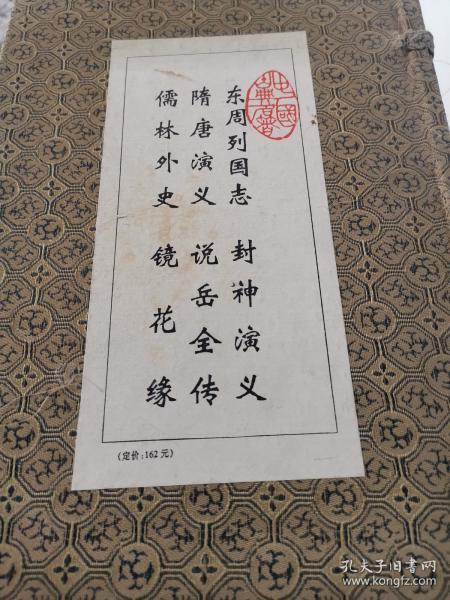 中国
古典名著
东周列国志 封神演义
隋唐演义 说岳全传
儒林外史 镜花缘
(定价:162元)
孔夫子旧书网
www.kongfz.com